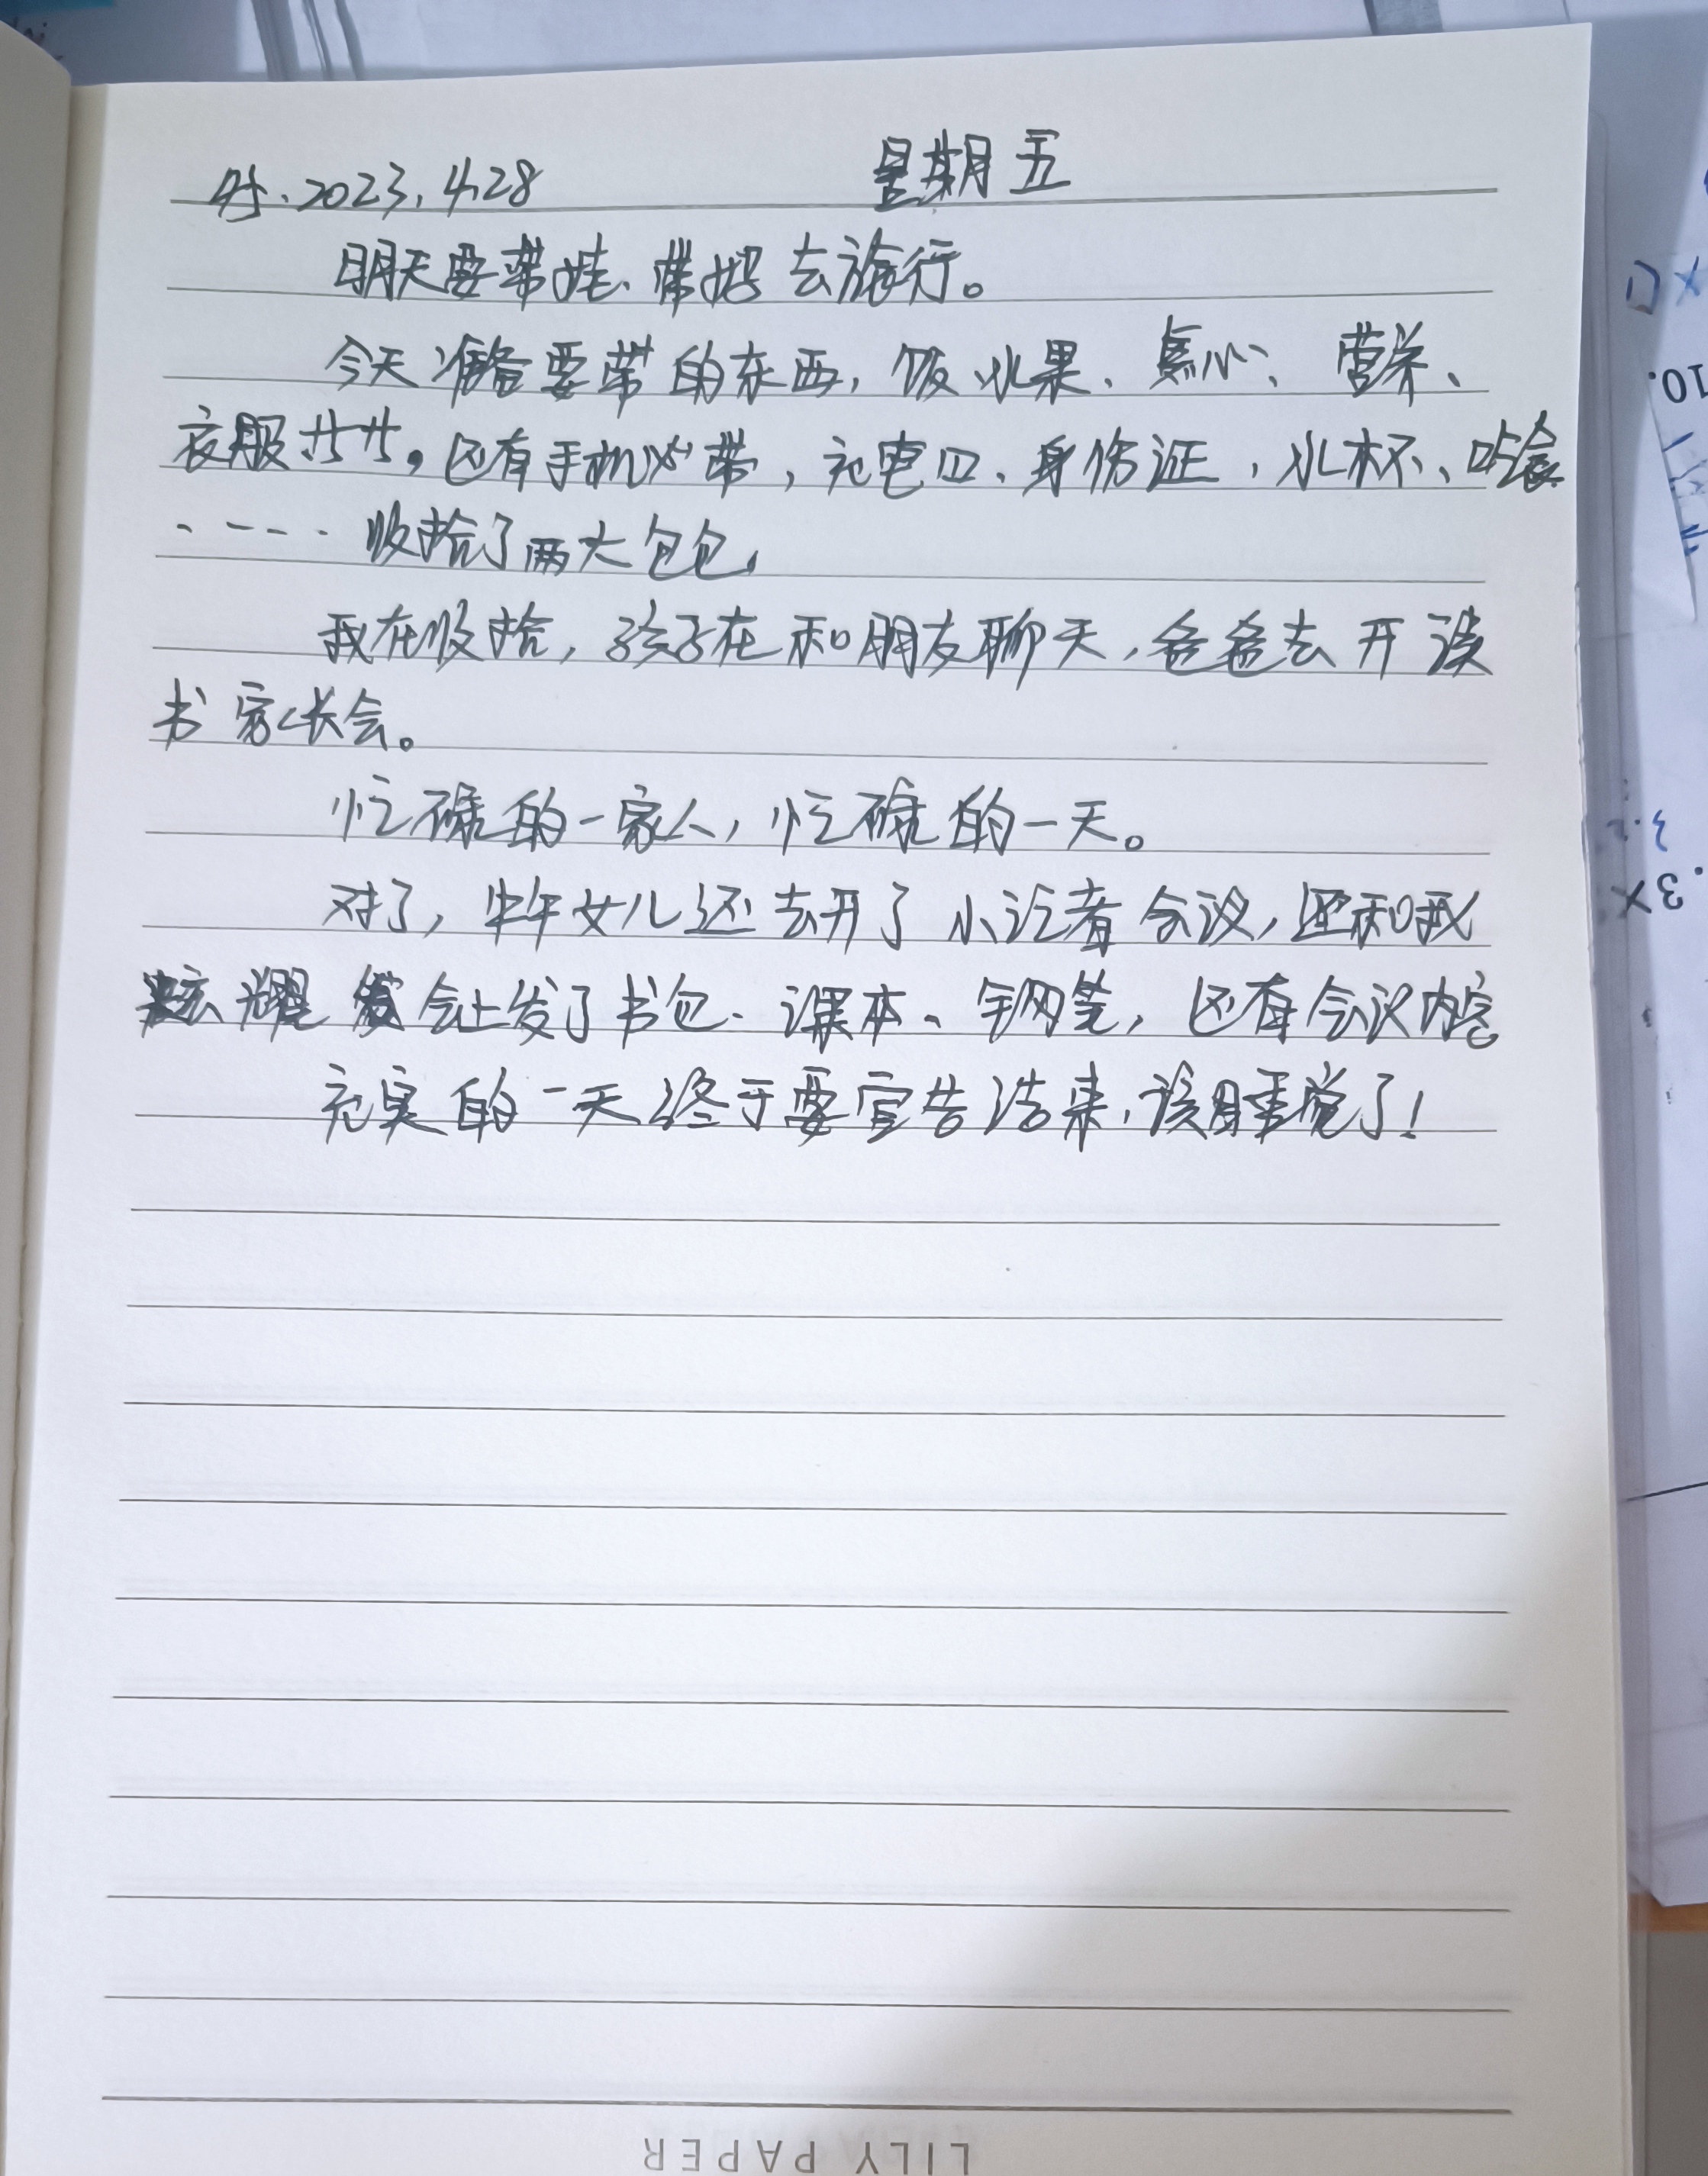 2023.4.28 星期五
明天要带娃、带妈去旅行。
今天准备要带的东西,饭、水果、点心、营养、
衣服。还有手机,充电口、身份证,水杯、
····收拾了两大包包,
我在收拾,孩子在和朋友聊天,爸爸去开读
书家长会。
忙碌的一家人,忙碌的一天。
对了,女儿还去开了小记者会议,还和我
炫耀会上发了书包、课本、钢笔,还有会议内容
充实的一天终于要宣告结束,该睡觉了!
LILY PAPER
10.